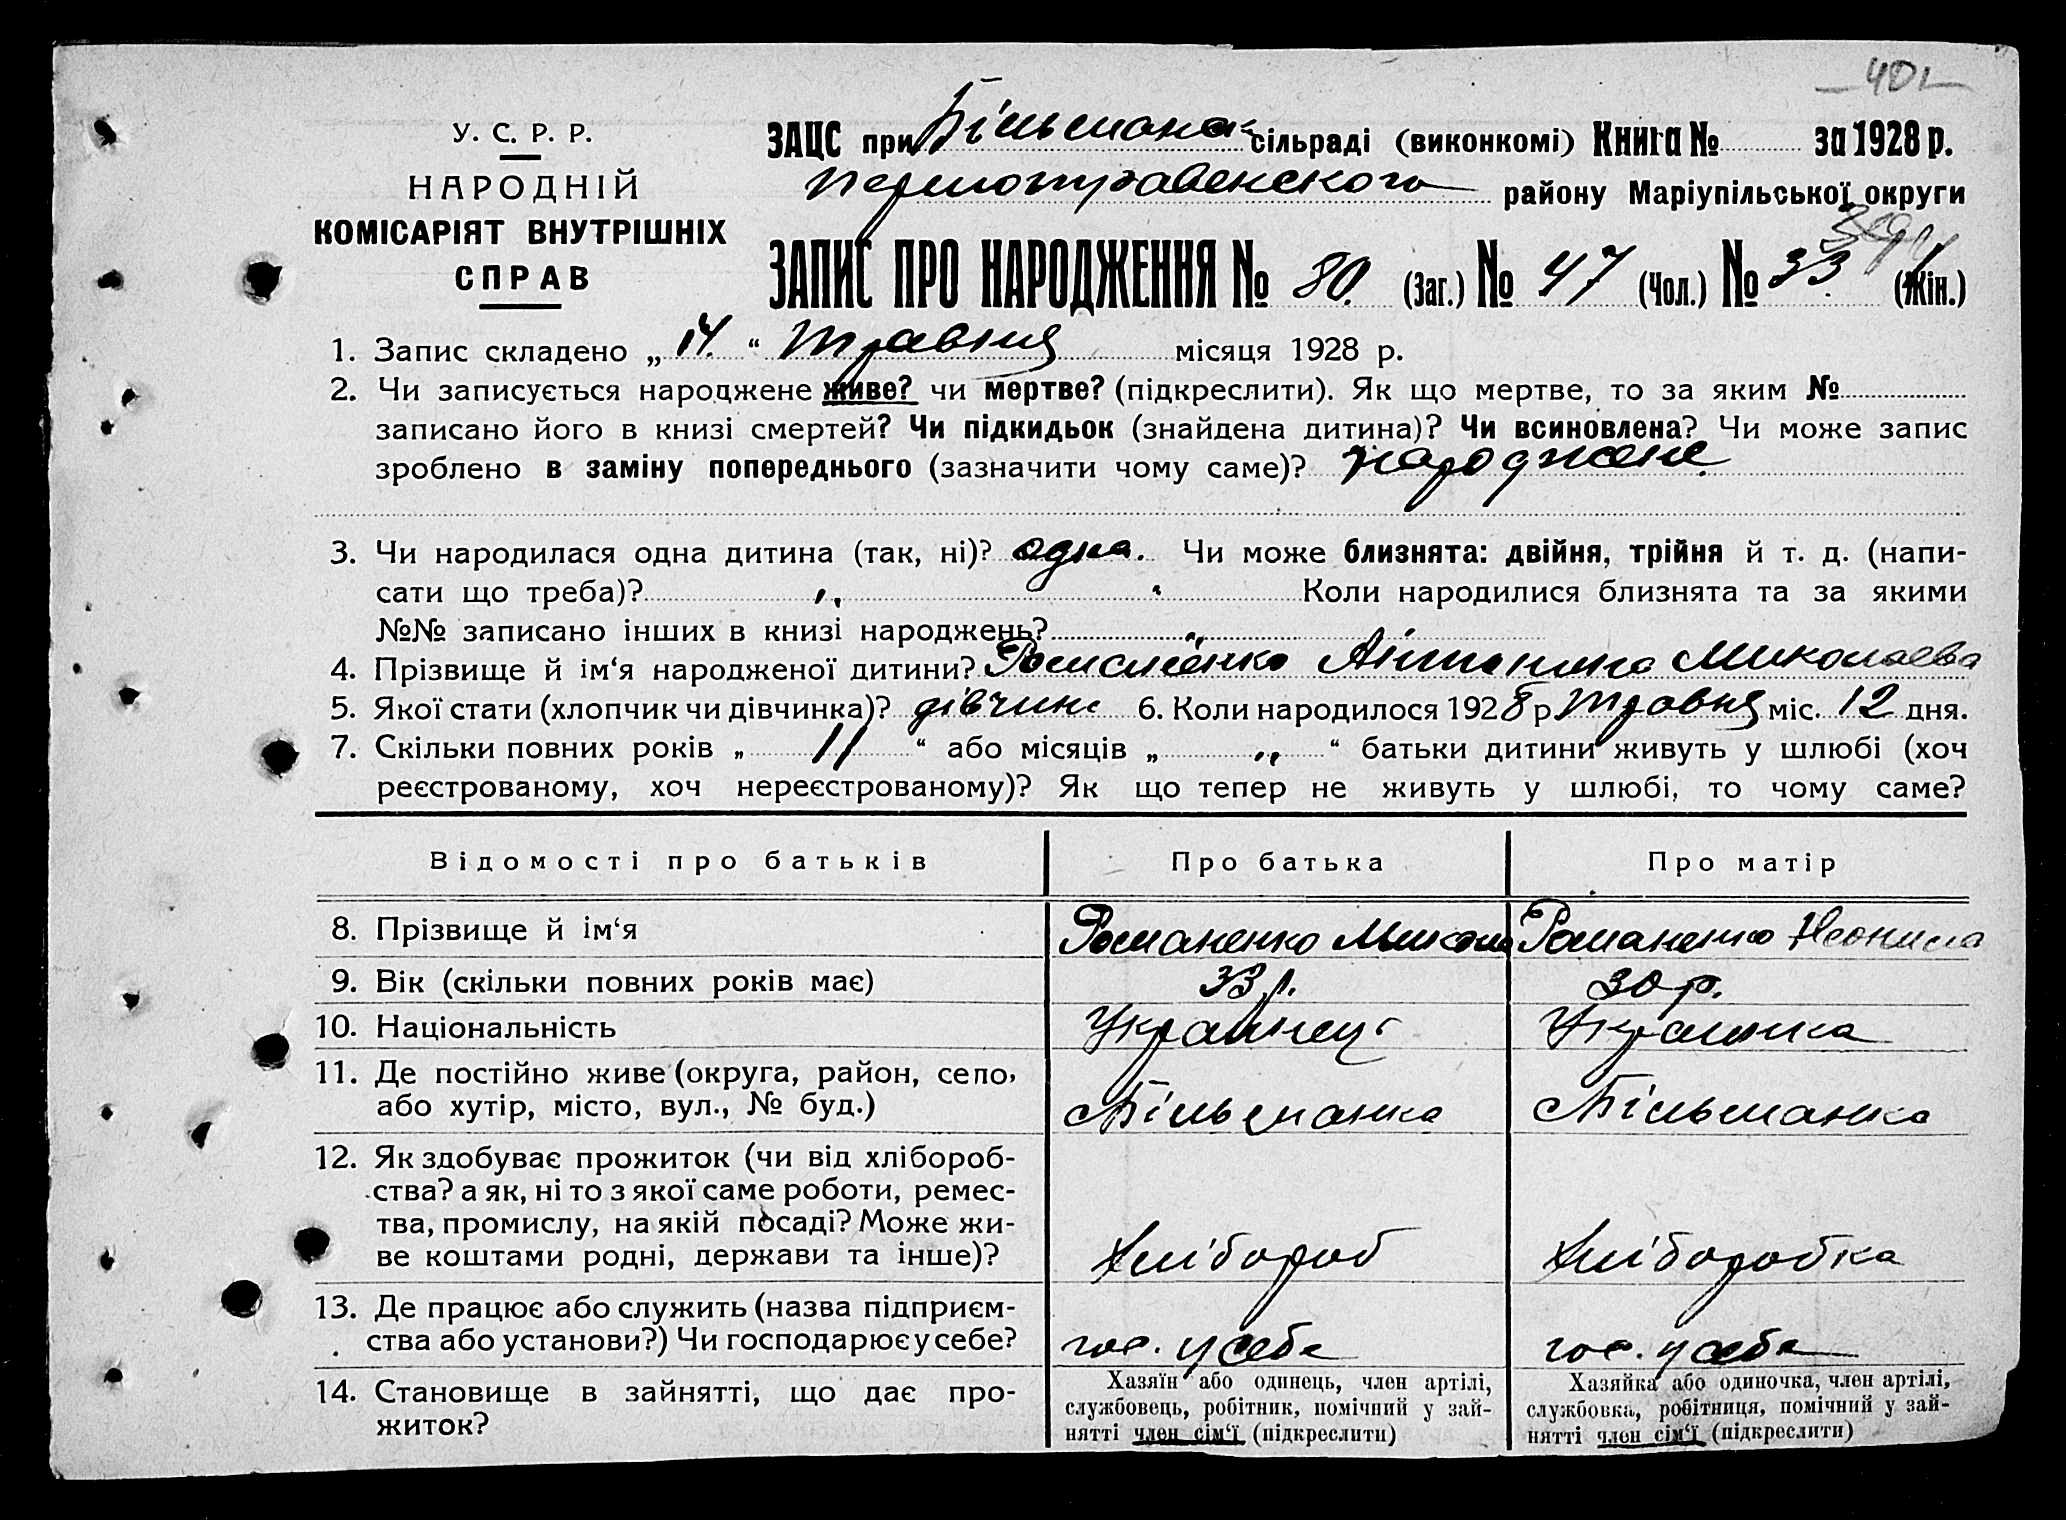 401
У. С. Р. Р.
НАРОДНІЙ
КОМІСАРІЯТ ВНУТРІШНІХ
СПРАВ
ЗАЦС при Більманск сільраді (виконкомі) Книга № за 1928 р.
Першотравенского району Маріупільської округи
ЗАПИС ПРО НАРОДЖЕННЯ № 80. (Заг.) № 47 (Чол.) № 33 (Жін.)
1. Запис складено „ 14. “ травня місяця 1928 р.
2. Чи записується народжене живе? чи мертве? (підкреслити). Як що мертве, то за яким №
записано його в книзі смертей? Чи підкидьок (знайдена дитина)? Чи всиновлена? Чи може запис
зроблено в заміну попереднього (зазначити чому саме)? народжене
3. Чи народилася одна дитина (так, ні)? одна. Чи може близнята: двійня, трійня й т. д. (напи-
сати що треба)? „ Коли народилися близнята та за якими
№№ записано інших в книзі народжень? „
4. Прізвище й ім‘я народженої дитини? Романенко Антонина Миколаева
5. Якої стати (хлопчик чи дівчинка)? дівчин 6. Коли народилось 1928 р травня міс. 12 дня.
7. Скільки повних років „ 11 “ або місяців „ „ “ батьки дитини живуть у шлюбі (хоч
реєстрованому, хоч нереєстрованому)? Як що тепер не живуть у шлюбі, то чому саме?
Відомості про батьків Про батька Про матір
8. Прізвище й ім‘я Романенко Микола Романенко Неонила
9. Вік (скільки повних років має) 33 р. 30 р.
10. Національність Українець Українка
11. Де постійно живе (округа, район, село,
або хутір, місто, вул., № буд.) Більманка Більманка
12. Як здобуває прожиток (чи від хлібороб-
ства? а як, ні то з якої саме роботи, ремес-
тва, промислу, на якій посаді? Може жи-
ве коштами родні, держави та інше)? Хлібороб Хліборобка
13. Де працює або служить (назва підприєм-
ства або установи?) Чи господарює у себе? гос. у себе гос. у себе
14. Становище в зайнятті, що дає про-
житок?
Хазяїн або одинець, член артілі,
службовець, робітник, помічний у зай-
нятті член сім‘ї (підкреслити)
Хазяйка або одиночка, член артілі,
службовка, робітниця, помічний у зай-
нятті член сім‘ї (підкреслити)